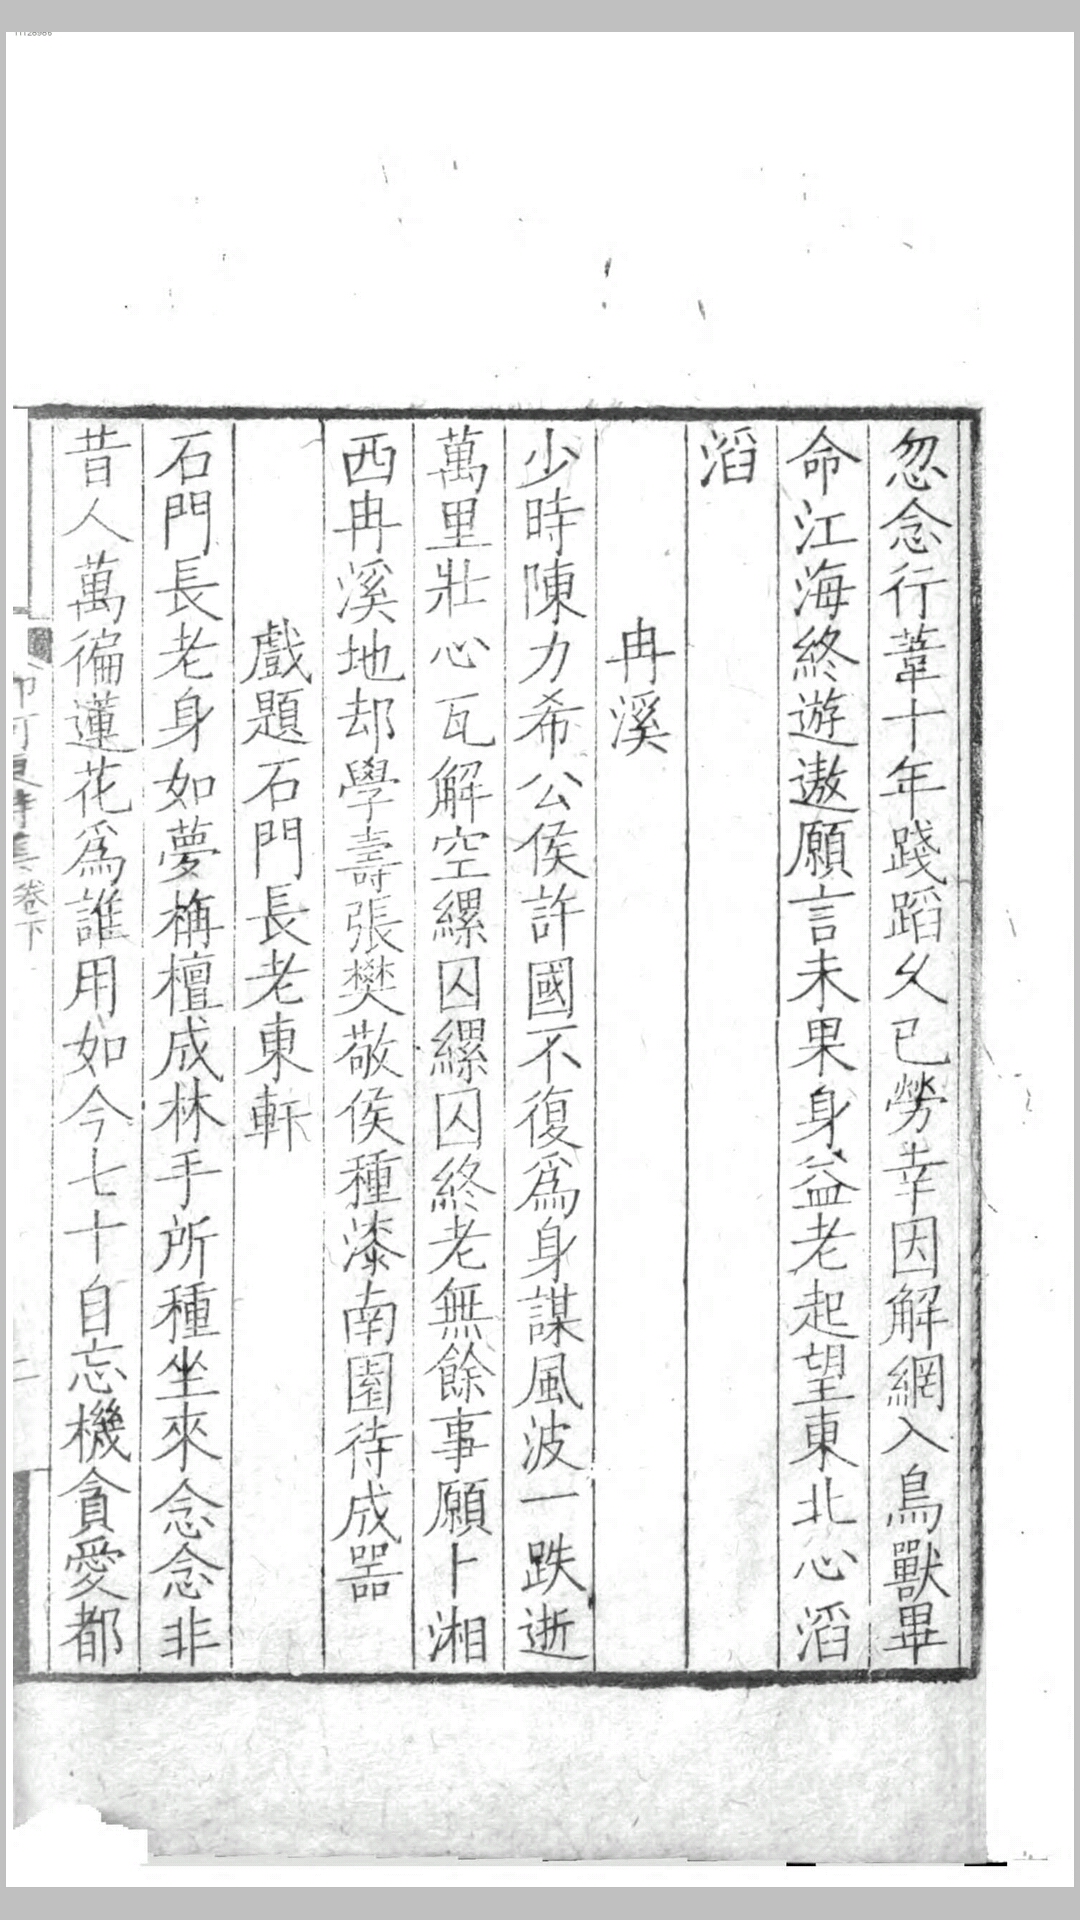 忽念行葦十年踐蹈久已勞幸因解網入鳥獸畢
命江海終遊遨願言未果身益老起望東北心滔
滔
冉溪
少時陳力希公侯許國不復爲身謀風波一跌逝
萬里壯心瓦解空縲囚縲囚終老無餘事願卜湘
西冉溪地却學壽張樊敬侯種漆南園待成器
戲題石門長老東軒
石門長老身如夢栴檀成林手所種坐來念念非
昔人萬徧蓮花爲誰用如今七十自忘機貪愛都
卷下